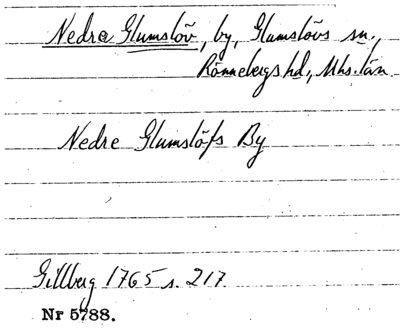 Nedra Glumslöv, by, Glumslövs sn.,
Rönnebergs hd, Mhs. län.
Nedre Glumslöfs By
Gillberg 1765 s. 217.
Nr 5788.